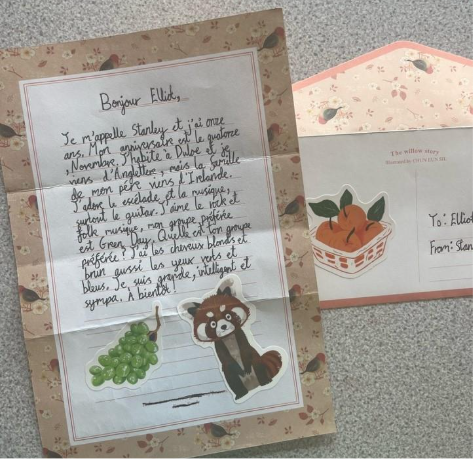 Bonjour Elliot,
Je m'appelle Stanley et j'ai onze
ans. Mon anniversaire est le quatorze
Novembre, J'habite à Duloe et je
viens d'Angleterre, mais la famille
de mon père viens d'Irelande.
J'adore la escalade et la musique,
surtout le guitar. J'aime le rock et
folk musique, mon groupe préférée
est Green Day. Quelle est ton groupe
préférée? J'ai les cheveux blonds et
brun aussi les yeux verts et
bleus. Je suis grande, intelligent et
sympa. À bientôt!
The willow story
To: Elliot
From: Stan